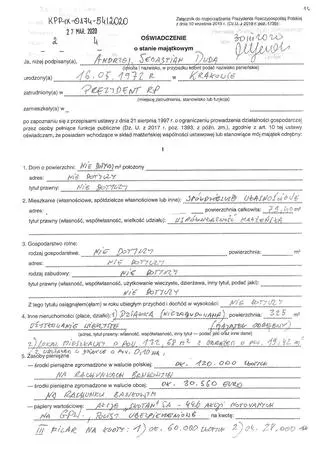 KPP-IX-0474-54/2020
27 MAR. 2020
2 4
Załącznik do rozporządzenia Prezydenta Rzeczypospolitej Polskiej
z dnia 10 września 2015 r. (Dz.U. z 2017 r. poz. 1739)
OŚWIADCZENIE
o stanie majątkowym
30.III.2020
Ja, niżej podpisany(a) ANDRZEJ, SEBASTIAN DUDA
(imiona i nazwisko, w przypadku kobiet podać nazwisko panieńskie)
urodzony(a) 16.05.1972 R w KRAKOWIE
zatrudniony(a) PREZYDENT RP
(miejsce zatrudnienia, stanowisko lub funkcja)
zamieszkały(a) w
po zapoznaniu się z przepisami ustawy z dnia 21 sierpnia 1997 r. o ograniczeniu prowadzenia działalności gospodarczej
przez osoby pełniące funkcje publiczne (Dz. U. z 2017 r. poz. 1393, z późn. zm.), zgodnie z art. 10 tej ustawy
oświadczam, że posiadam wchodzące w skład małżeńskiej wspólności ustawowej lub stanowiące mój majątek odrębny:
I
1. Dom o powierzchni: NIE DOTYCZY m² położony
adres: NIE DOTYCZY
tytuł prawny: NIE DOTYCZY
2. Mieszkanie (własnościowe, spółdzielcze własnościowe lub inne): SPÓŁDZIELCZE WŁASNOŚCIOWE
adres: powierzchnia całkowita: 79,40 m²
tytuł prawny (własność, współwłasność, wielkość udziału): WSPÓŁWŁASNOŚĆ MAŁŻEŃSKA
3. Gospodarstwo rolne:
rodzaj gospodarstwa: NIE DOTYCZY powierzchnia: m²
adres: NIE DOTYCZY
rodzaj zabudowy: NIE DOTYCZY
tytuł prawny (własność, współwłasność, użytkowanie wieczyste, dzierżawa, inny tytuł, podać jaki):
NIE DOTYCZY
Z tego tytułu osiągnąłem(ęłam) w roku ubiegłym przychód i dochód w wysokości: NIE DOTYCZY
4. Inne nieruchomości (place, działki): 1) DZIAŁKA (NIEZABUDOWANA) powierzchnia: 325 m²
UŻYTKOWANIE WIECZYSTE (MAJĄTEK ODRĘBNY)
5. Zasoby pieniężne:
— środki pieniężne zgromadzone w walucie polskiej: OK. 120.000 ZŁOTYCH
NA RACHUNKACH BANKOWYCH
— środki pieniężne zgromadzone w walucie obcej: OK. 30.550 EURO
NA RACHUNKU BANKOWYM
— papiery wartościowe: AKCJE "SKOTAN" SA - 446 AKCJI NOTOWANYCH
NA GPW, POLISY UBEZPIECZENIOWE na kwotę:
III FILAR NA KWOTY: 1) OK. 60.000 ZŁOTYCH 2) OK. 28.000 ZŁ